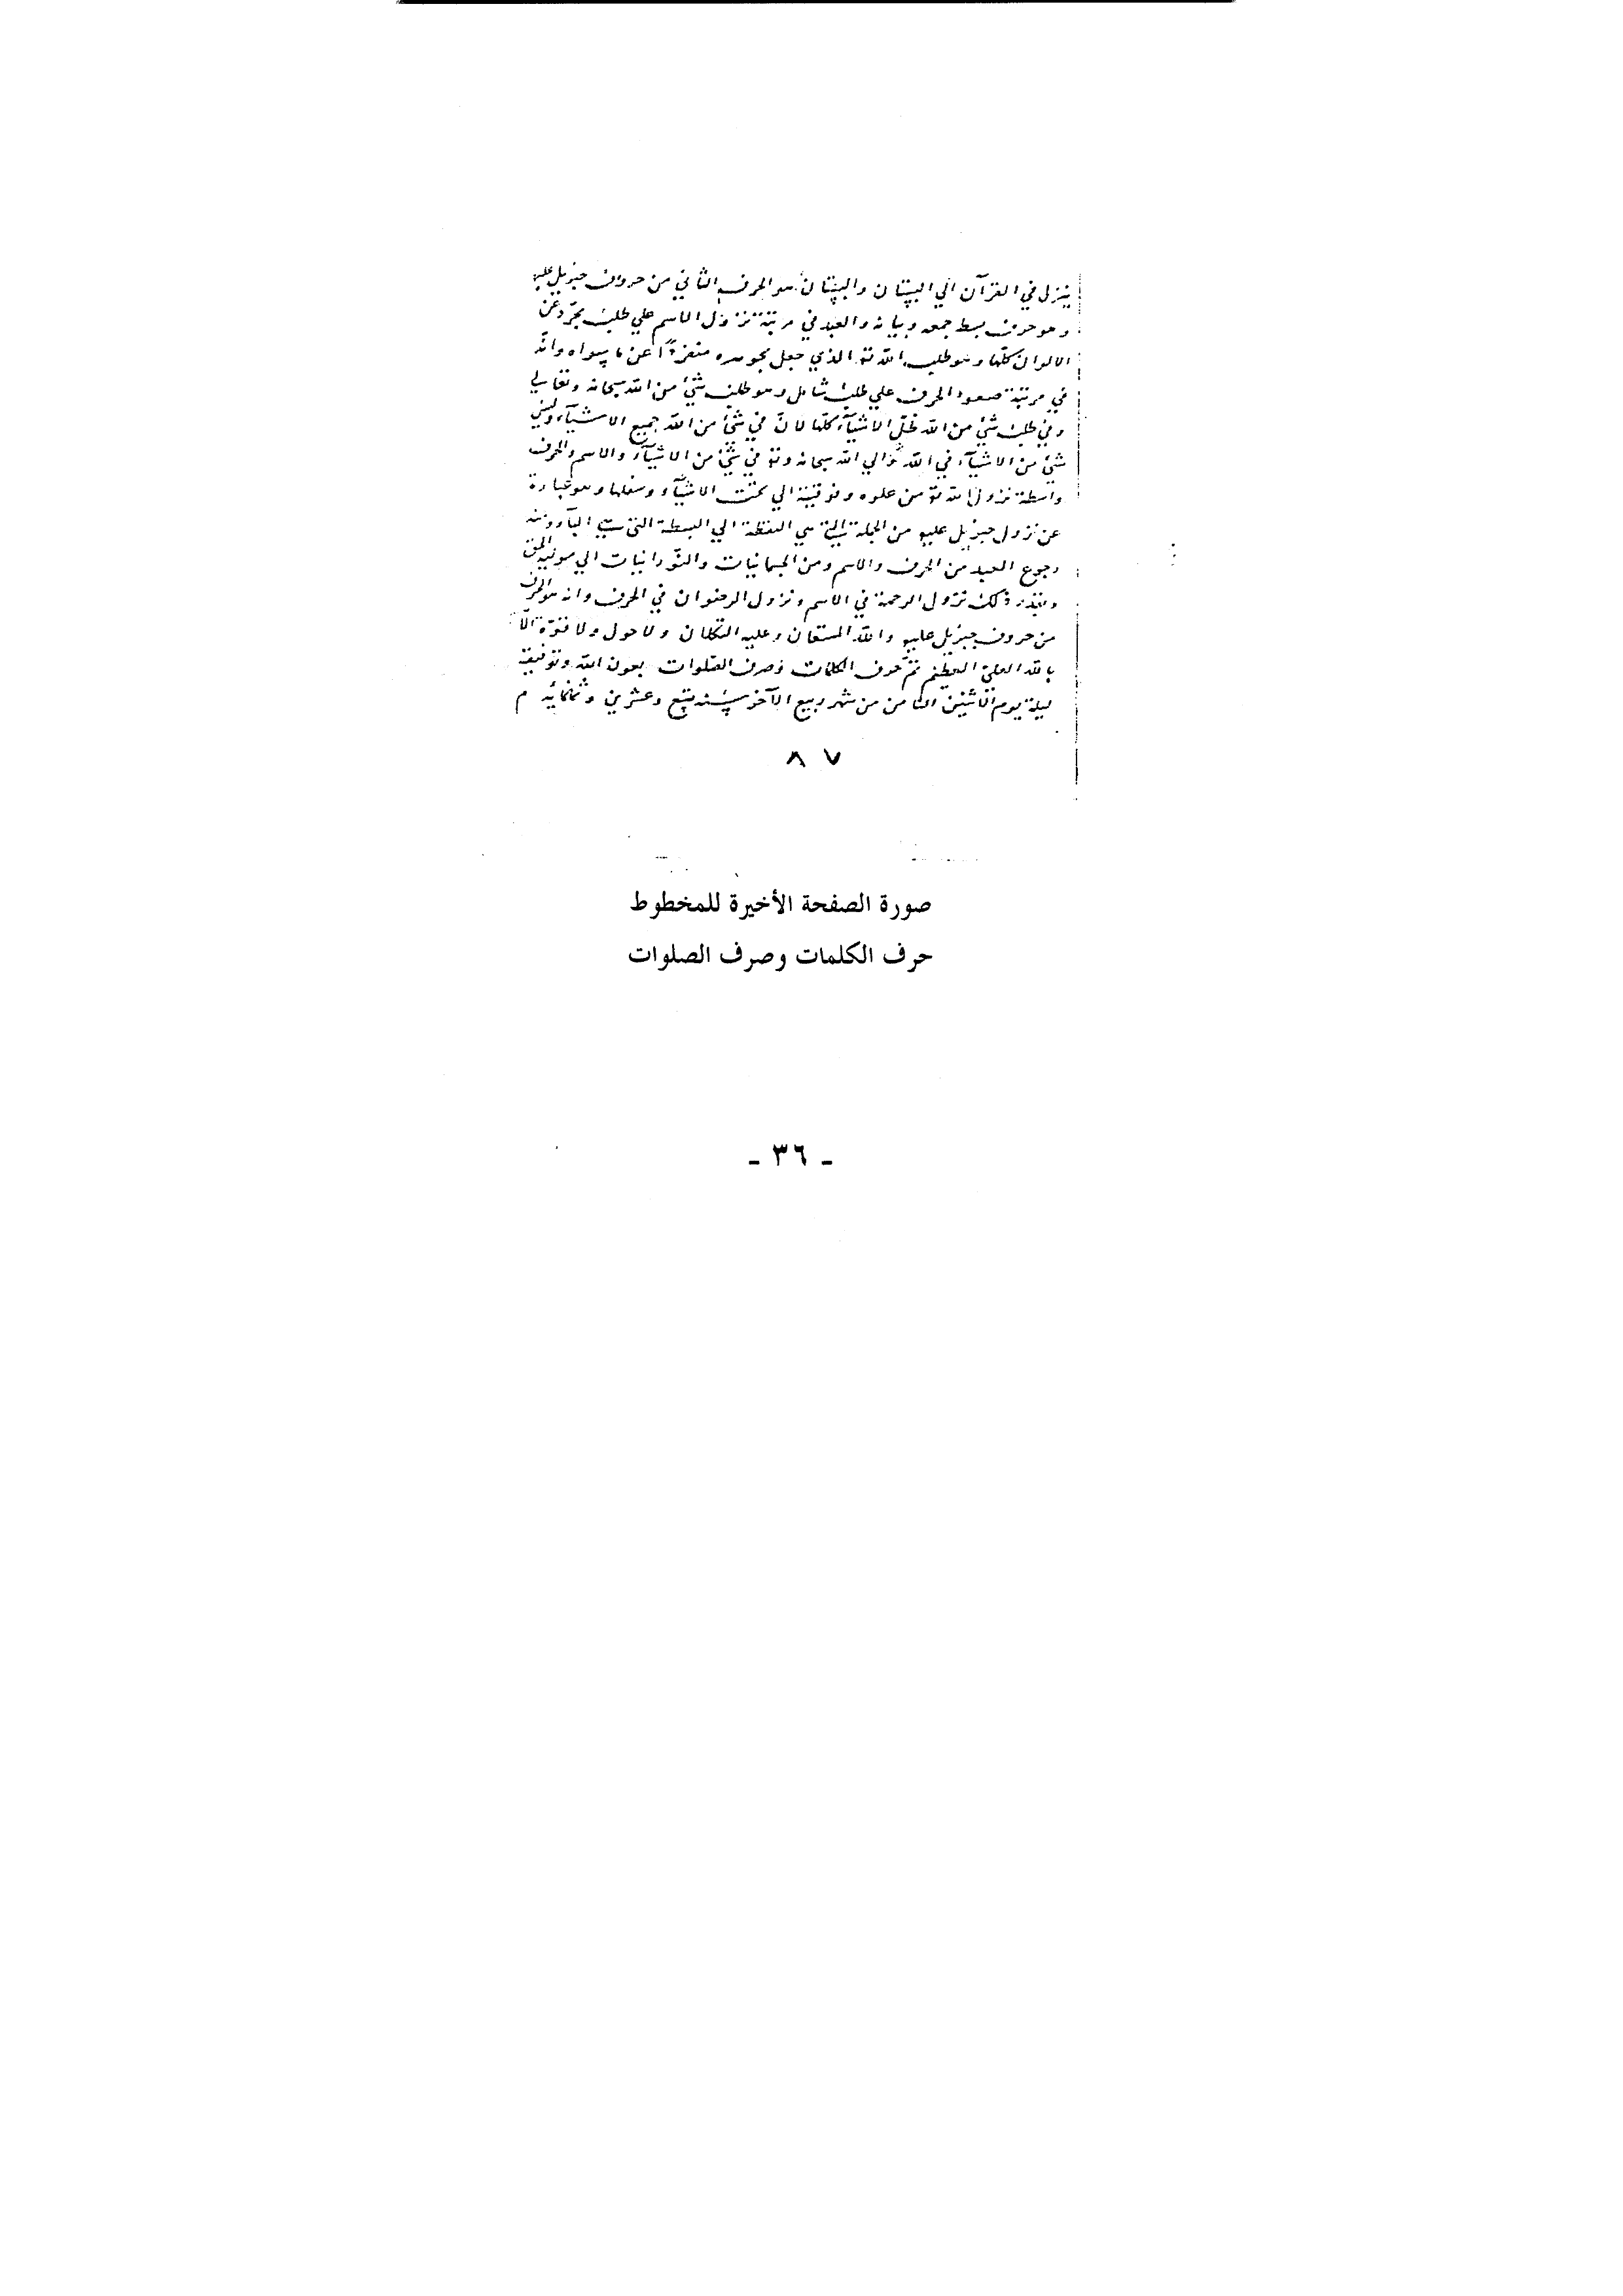 ينزل في القرآن الي البيان والبيان هو الحرف الثاني من حروف جبريل عليه
وهو حرف بسط جمعه وبيانه والعبد في مرتبة نزول الاسم علي طلب مجرد عن
الالوان كلها وهو طلب الله تع الذي جعل بجوهره منفردًا عن ما سواه وانّه
في مرتبة صعود الحرف علي طلب شامل وهو طلب شئ من الله سبحانه وتعالي
وفي طلب شئ من الله كلّ الاشيآء كلها لانّ في شئ من الله جميع الاشيآء وليس
شئ من الاشيآء في الله تعالي الله سبحانه وتع في شئ من الاشيآء والاسم والحرف
واسطة نزول الله تع من علوه وفوقيته الي تحت الاشيآء وسفلها وهو عبارة
عن نزول جبريل عليه من الجملة التي هي النقطة الي البسطة التي هي البآء ومنه
رجوع العبد من الحرف والاسم ومن الجسمانيات والنّورانيات الي هوية الحق
وبقدر ذلك نزول الرحمة في الاسم ونزول الرضوان في الحرف وانه هو الحرف
من حروف جبريل عليه والله المستعان وعليه التكلان ولا حول ولا قوّة الّا
بالله العليّ العظيم تمّ حرف الكلمات وصرف الصّلوات بعون الله وتوفيقه
ليلة يوم الاثنين الثامن من شهر ربيع الآخر سنة تسع وعشرين وثمانمائة م
٨٧
صورة الصفحة الأخيرة للمخطوط
حرف الكلمات وصرف الصلوات
- ٣٦ -